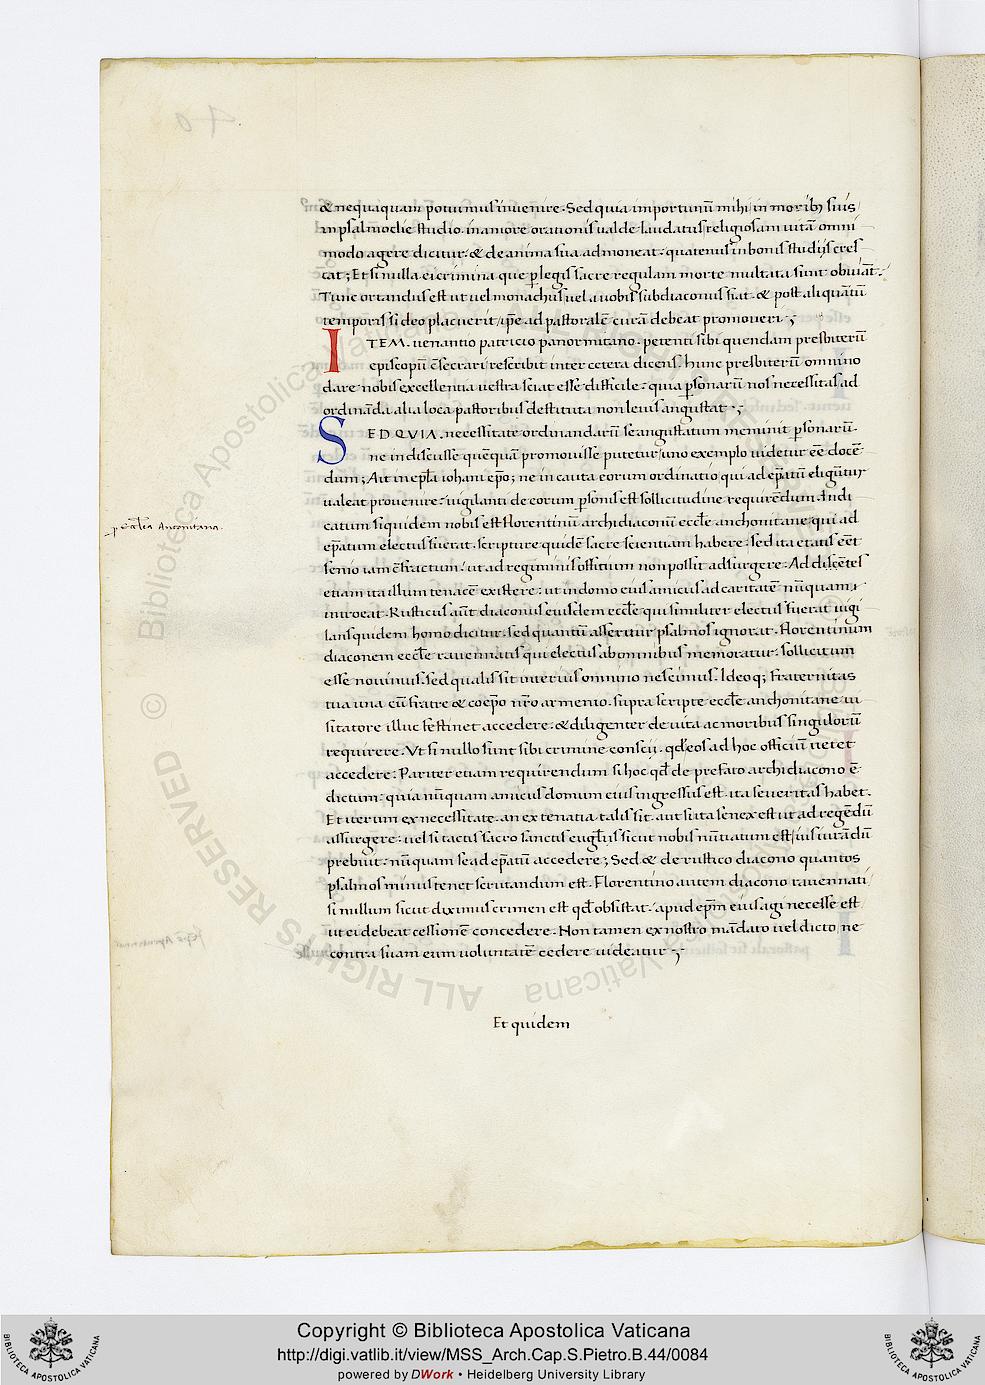 & nequaquam potuimus invenire. Sed quia importunū mihi in morib; suis
in psalmodie studio. in amore orationis valde laudatus religiosam vitā omni
modo agere dicitur. & de anima sua admoneat. quatenus in bonis studijs cres
cat; Et si nulla ei crimina que p legis sacre regulam morte multata sunt obviāt.
Tunc ortandus est ut vel monachus vel a vobis subdiaconus fiat. & post aliquātū
temporis si deo placuerit ipse ad pastoralē curā debeat promoveri;
ITEM. venantio patricio panormitano. petenti sibi quendam presbiterū
episcopū cōsecrari rescribit inter cetera dicens. hunc presbiterū omnino
dare nobis excellentia vestra sciat esse difficile. quia psonarū nos necessitas ad
ordinādā alia loca pastoribus destituta non levis angustat;
SED QVIA. necessitate ordinandarū se angustatum meminit psonarū.
ne indiscusse quēquā promovisse putetur uno exemplo videtur eē docē
dum; Ait in epła iohani epō; ne incauta eorum ordinatio qui ad epātum eligūtur
valeat provenire. vigilanti de eorum psonis est sollicitudine requirēdum. Indi
catum siquidem nobis est florentinū archidiaconū eccłe anchonitane. qui ad
epātum electus fuerat. scripture quidē sacre scientiam habere. sed ita etatis eēt
senio iam cōfractum. ut ad regiminis officium non possit adsurgere. Addicētes
etiam ita illum tenacē existere. ut in domo eius amicus ad caritatē nūquam
introeat. Rusticus aūt diaconus eiusdem eccłe qui similiter electus fuerat vigi
lans quidem homo dicitur. sed quantū asseritur psalmos ignorat. florentinum
diaconem eccłe ravennatis qui electus ab omnibus memoratur. sollicitum
esse novimus. sed qualis sit interius omnino nescimus. Ideoq; fraternitas
tua una cū fratre & coepō nr̄o armenio. supra scripte eccłe anchonitane vi
sitatore illuc festinet accedere. & diligenter de vita ac moribus singulorū
requirere. Ut si nullo sunt sibi crimine conscij. qđ eos ad hoc officiū vetet
accedere. Pariter etiam requirendum si hoc qđ de prefato archidiacono ē
dictum. quia nūquam amicus domum eius ingressus est. ita se veritas habet.
Et utrum ex necessitate. an ex tenatia talis sit. aut si ita senex est ut ad regēdū
assurgere. vel si tactis sacro sanctis evgłiis sicut nobis nūtiatum est ius iurādū
prebuit. nūquam se ad epātū accedere; Sed & de rustico diacono quantos
psalmos minus tenet scrutandum est. Florentino autem diacono ravennati
si nullum sicut diximus crimen est qđ obsistat. apud epm eius agi necesse est
ut ei debeat cessionē concedere. Non tamen ex nostro mādato vel dicto, ne
contra suam eum voluntatē cedere videatur;
Et quidem
p Ecclēa Anconitana.
© Biblioteca Apostolica Vaticana ALL RIGHTS RESERVED
Copyright © Biblioteca Apostolica Vaticana
http://digi.vatlib.it/view/MSS_Arch.Cap.S.Pietro.B.44/0084
powered by DWork • Heidelberg University Library
BIBLIOTECA APOSTOLICA VATICANA
BIBLIOTECA APOSTOLICA VATICANA